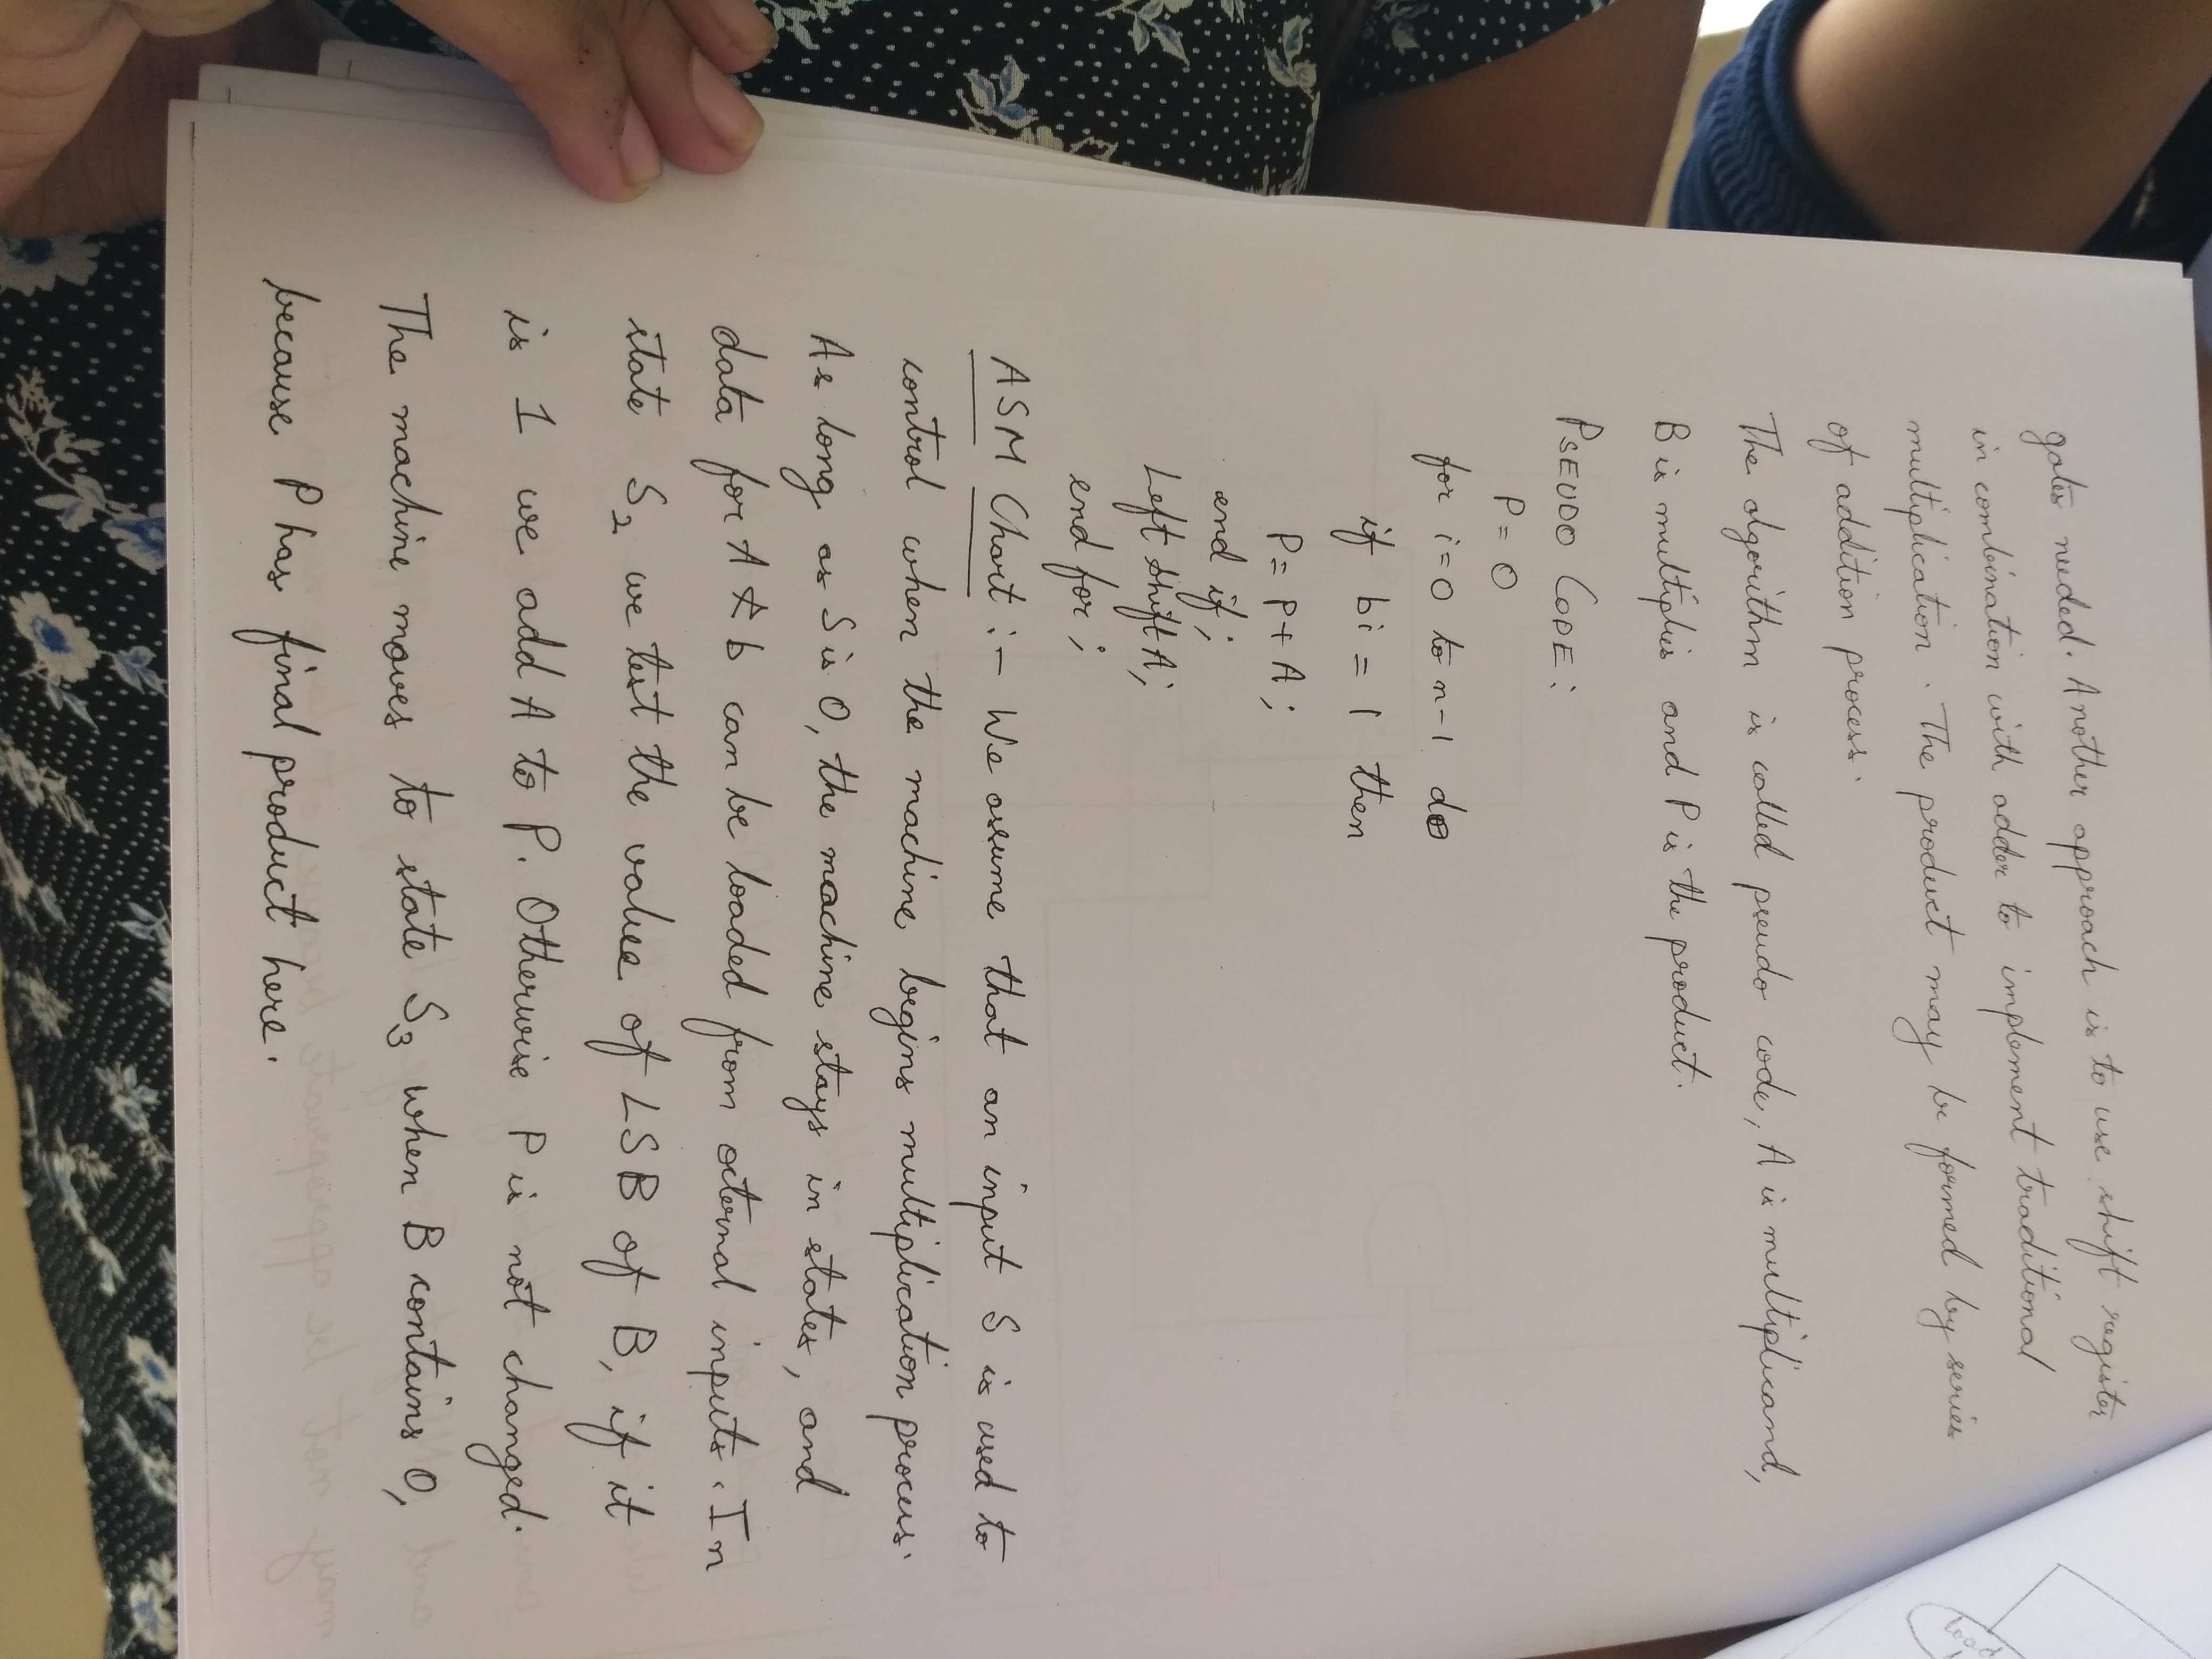 gates needed. Another approach is to use shift register
in combination with adder to implement traditional
multiplication. The product may be formed by series
of addition process.
The algorithm is called pseudo code, A is multiplicand,
B is multiplies and P is the product.
PSEUDO CODE:
P = 0
for i = 0 to n-1 do
if bi = 1 then
P = P + A;
end if;
Left shift A;
end for;
ASM Chart :- We assume that an input S is used to
control when the machine begins multiplication process.
As long as S is 0, the machine stays in states, and
data for A & b can be loaded from external inputs. In
state S2 we test the values of LSB of B, if it
is 1 we add A to P. Otherwise P is not changed.
The machine moves to state S3 when B contains 0,
because P has final product here.
load